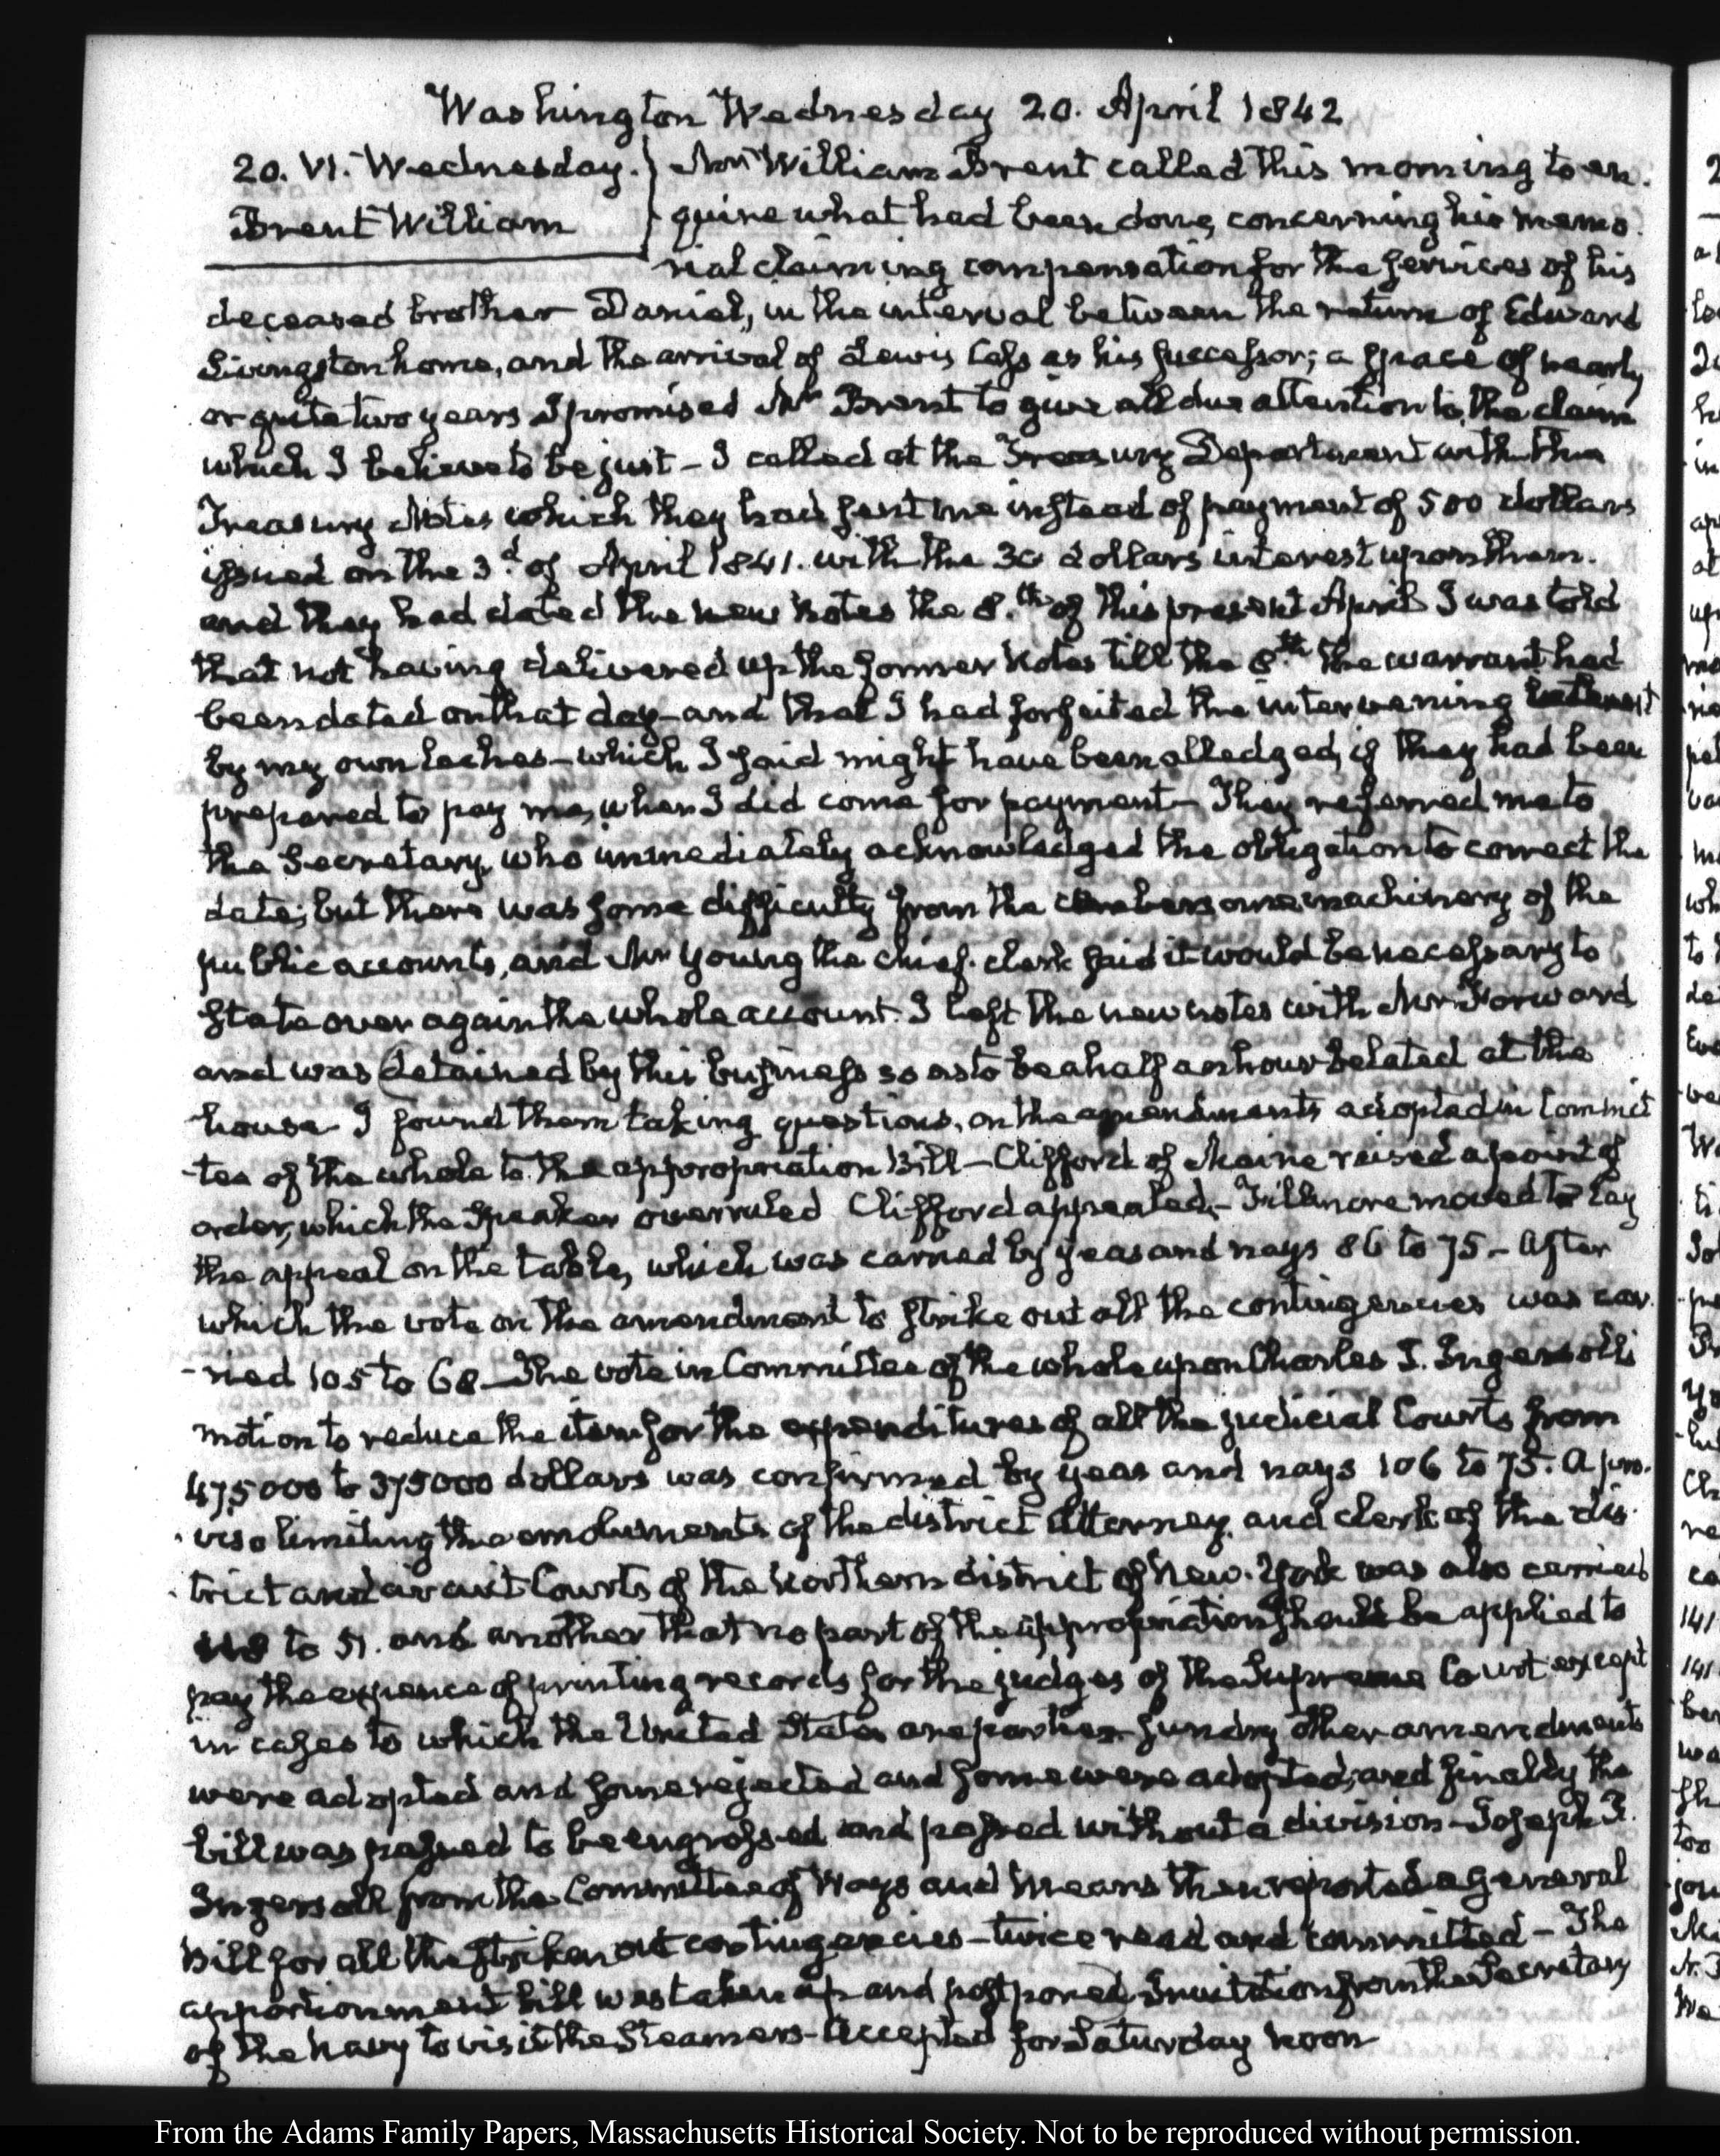 Washington Wednesday 20. April 1842
20. VI. Wednesday.
Brent William
Mr William Brent called this morning to en-
quire what had been done, concerning his memo-
rial claiming compensation for the services of his
deceased brother Daniel, in the interval between the return of Edward
Livingston home, and the arrival of Lewis Cass as his successor; a space of nearly
or quite two years I promised Mr Brent to give all due attention to the claim
which I believe to be just – I called at the Treasury Department with the
Treasury Notes which they had sent me instead of payment of 500 dollars
issued on the 3d. of April 1841. with the 30 dollars interest upon them.
and they had dated the new notes the 8.th of this present April I was told
that not having delivered up the former notes till the 8th the warrant had
been dated on that day – and that I had forfeited the intervening interest
by my own laches – which I said might have been alledged, if they had been
prepared to pay me, when I did come for payment – They referred me to
the Secretary, who immediately acknowledged the obligation to correct the
date; but there was some difficulty from the cumbersome machinery of the
public accounts, and Mr Young the chief-clerk said it would be necessary to
state over again the whole account. I left the new notes with Mr Forward
and was detained by this business so as to be a half an hour belated at the
house. I found them taking questions, on the amendments adopted in Commit
-tee of the whole to the appropriation Bill – Clifford of Maine raised a point of
order, which the Speaker overruled Clifford appealed – Fillmore moved to lay
the appeal on the table, which was carried by yeas and nays 86 to 75 – After
which the vote on the amendment to strike out all the contingencies was car-
-ried 105 to 68 – The vote in Committee of the whole upon Charles J. Ingersoll's
motion to reduce the item for the expenditures of all the judicial Courts from
475000 to 375000 dollars was confirmed by yeas and nays 106 to 75. A pro-
-viso limiting the emoluments of the district Attorney, and clerk of the dis-
-trict and circuit Courts of the Northern district of New-York was also carried
118 to 51. and another that no part of the appropriation should be applied to
pay the expence of printing records for the judges of the Supreme Court except
in cases to which the United States are parties – sundry other amendments
were adopted and some rejected and some were adopted; and finally the
bill was passed to be engrossed and passed without a division – Joseph R.
Ingersoll from the Committee of Ways and Means then reported a general
Bill for all the stricken out contingencies – twice read and committed – The
apportionment bill was taken up and postponed – Invitation from the Secretary
of the Navy to visit the Steamers – Accepted for Saturday Noon
From the Adams Family Papers, Massachusetts Historical Society. Not to be reproduced without permission.